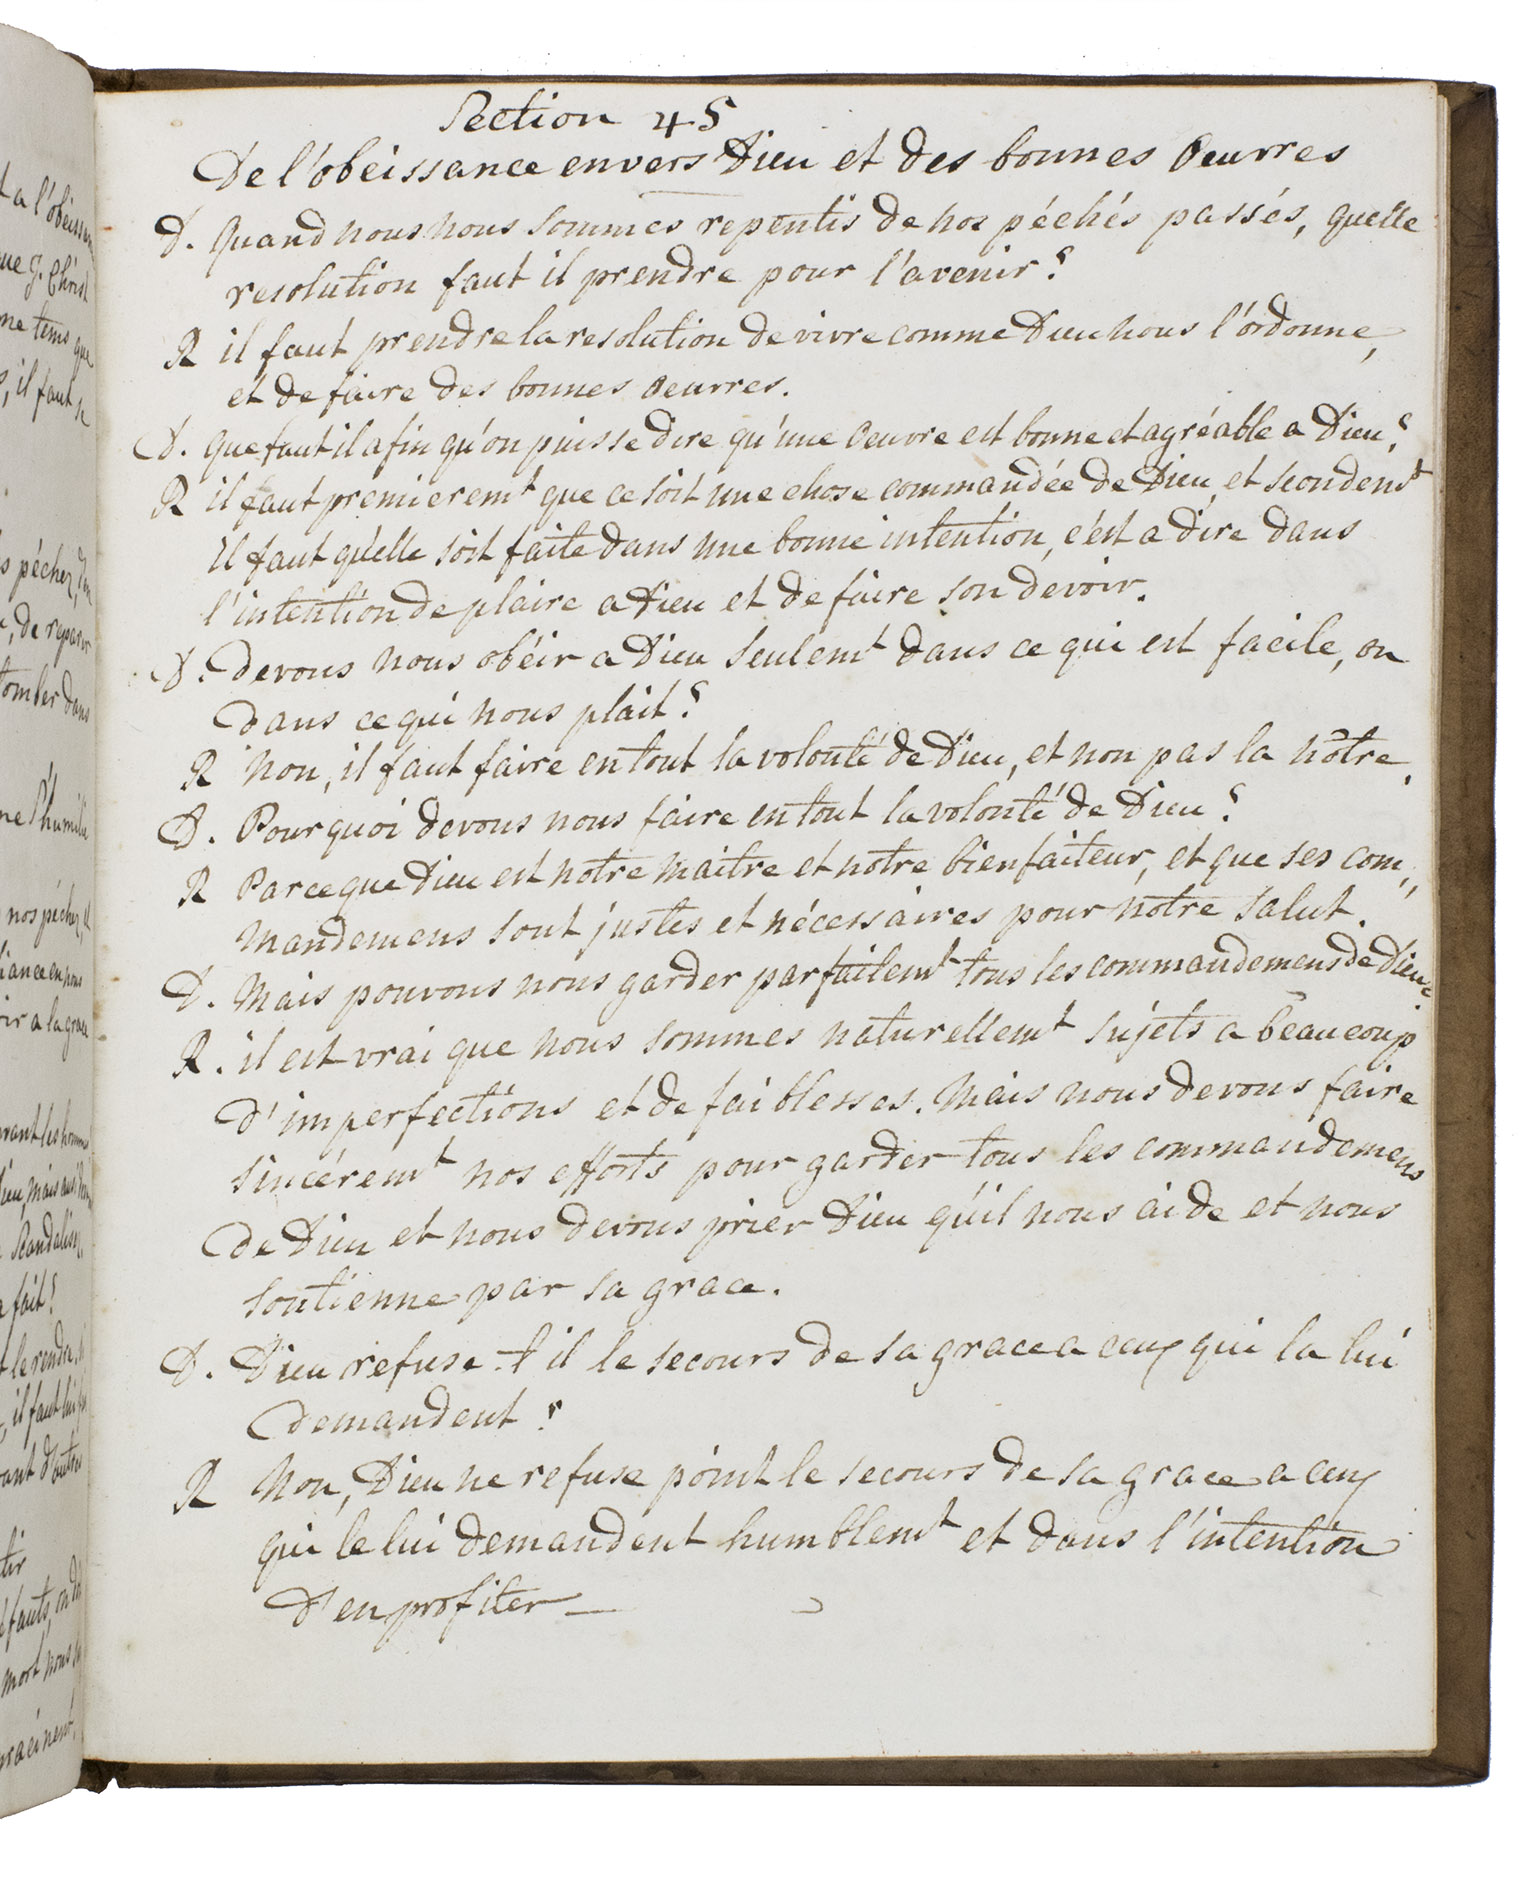 t a l'obeissan
que J. Christ
me tems que
, il faut se
s péchez,
, de reparer
tomber dans
ne s'humilie
nos péchez, et
fiance en nous
ir a la grace
vant les hommes
Dieu, mais aussi
Scandalisé
a fait?
t le rendre,
, il faut lui
vant d'autres
tir
mort nous
Section 45
De l'obéissance envers Dieu et des bonnes Oeuvres
D. Quand nous nous sommes repentis de nos péchés passés, quelle
resolution faut il prendre pour l'avenir?
R il faut prendre la resolution de vivre comme Dieu nous l'ordonne,
et de faire des bonnes Oeuvres.
D. que faut il afin qu'on puisse dire qu'une Oeuvre est bonne et agréable a Dieu?
R il faut premieremt que ce soit une chose commandée de Dieu, et secondemt
il faut qu'elle soit faite dans une bonne intention, c'est a dire dans
l'intention de plaire a Dieu et de faire son devoir.
D. devons nous obéir a Dieu seulemt dans ce qui est facile, ou
dans ce qui nous plait?
R Non, il faut faire en tout la volonté de Dieu, et non pas la nôtre.
D. Pourquoi devons nous faire en tout la volonté de Dieu?
R Parceque Dieu est notre maitre et notre bienfaiteur, et que ses com,,
mandemens sont justes et nécessaires pour notre salut.
D. Mais pouvons nous garder parfaitemt tous les commandemens de Dieu?
R. il est vrai que nous sommes naturellemt sujets a beaucoup
d'imperfections et de faiblesses. Mais nous devons faire
sincéremt nos efforts pour garder tous les commandemens
de Dieu et nous devons prier Dieu qu'il nous aide et nous
soutienne par sa grace.
D. Dieu refuse-t il le secours de sa grace a ceux qui la lui
demandent?
R Non, Dieu ne refuse point le secours de sa grace a ceux
qui le lui demandent humblemt et dans l'intention
d'en profiter —